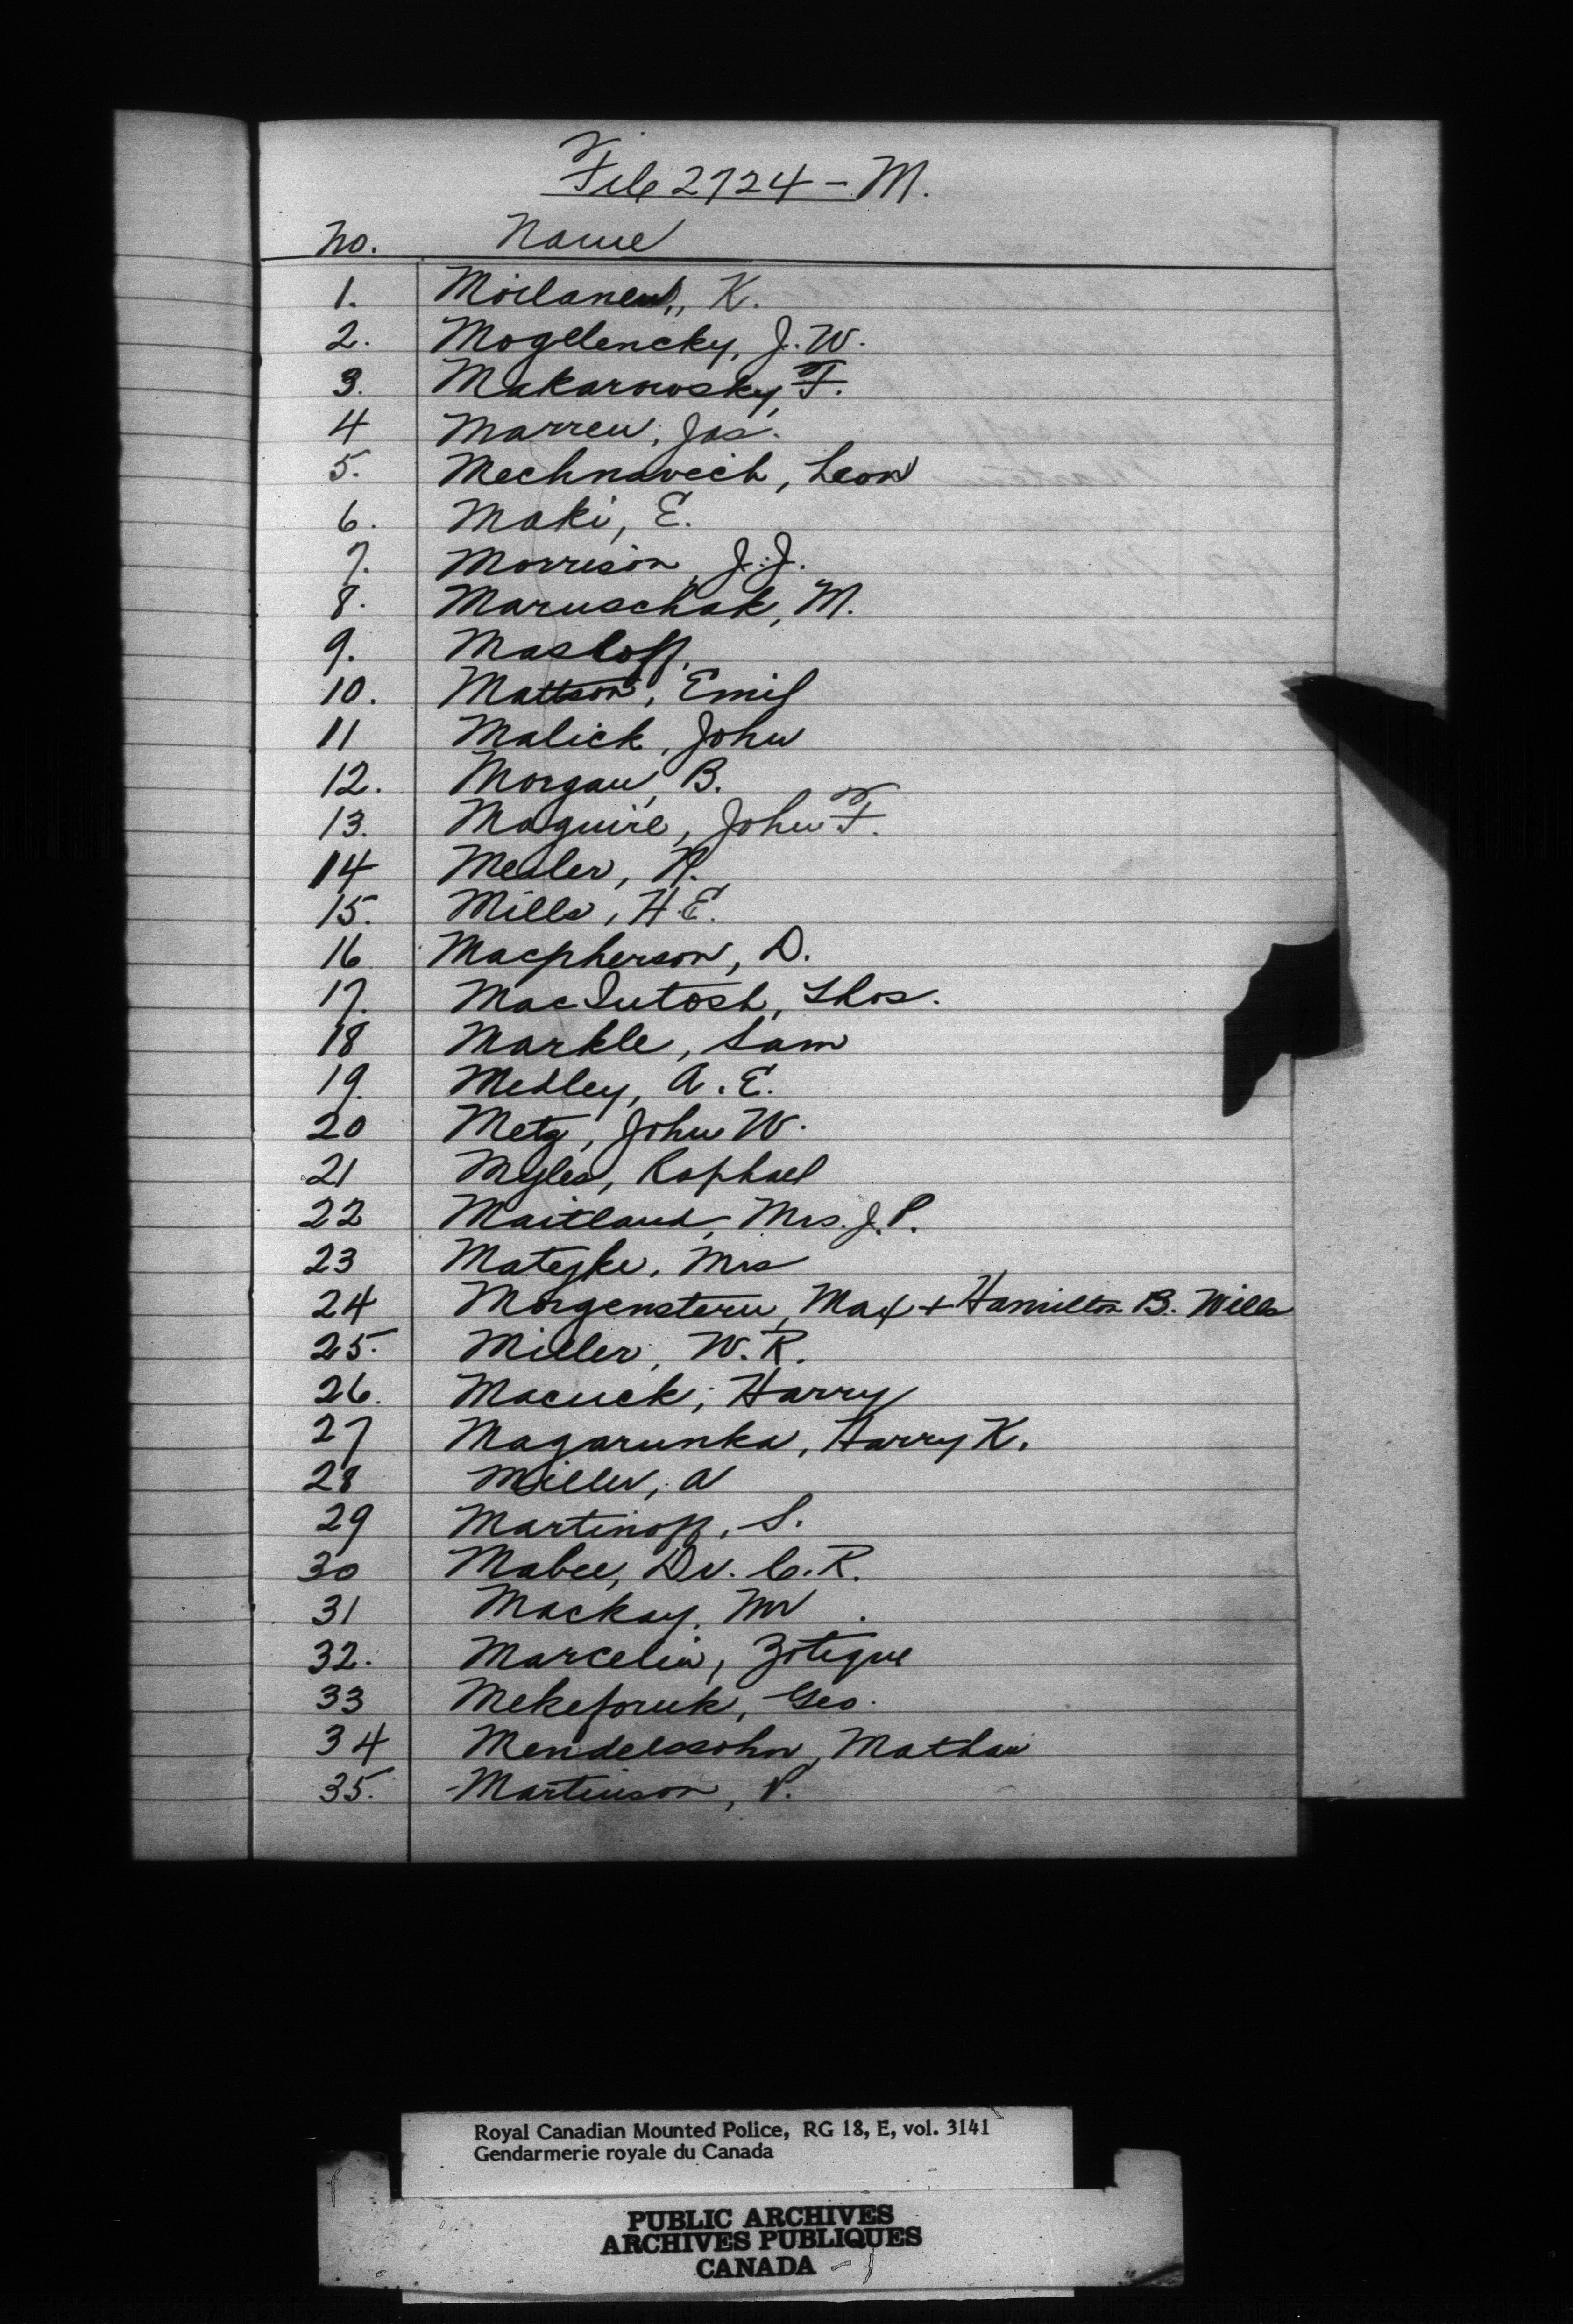 File 2724 - M.
No. Name
1. Moilanen, K.
2. Mogelencky, J. W.
3. Makarowsky, F.
4 Marren, Jas.
5. Mechnavech, Leon
6. Maki, E.
7. Morrison, J. J.
8. Maruschak, M.
9. Masloff,
10. Mattson, Emil
11 Malick, John
12. Morgan, B.
13. Maguire, John F.
14 Medler,
15. Mills, H. E.
16 Macpherson, D.
17. MacIntosh, Thos.
18 Markle, Sam
19. Medley, A. E.
20 Metz, John W.
21 Myles, Raphael
22 Maitland, Mrs. J. P.
23 Mrs
24 Morgenstern, Max + Hamilton B. Wills
25. Miller, W. R.
26. Macuck, Harry
27 Magarunka, Harry K.
28 Miller, A
29 Martinoff, S.
30 Mabee, Dr. C. R.
31 Mackay, Mr.
32. Marcelin, Zotique
33 Geo.
34 Mendelssohn, Mathan
35. Martinson, P.
Royal Canadian Mounted Police, RG 18, E, vol. 3141
Gendarmerie royale du Canada
PUBLIC ARCHIVES
ARCHIVES PUBLIQUES
CANADA